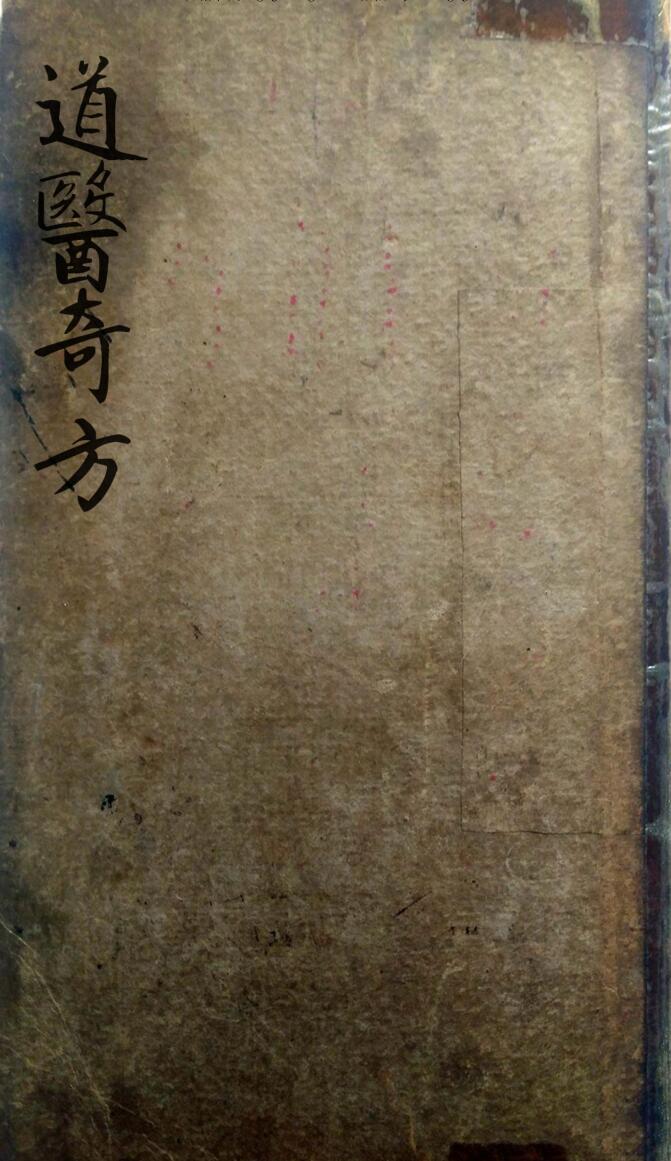 道醫奇方